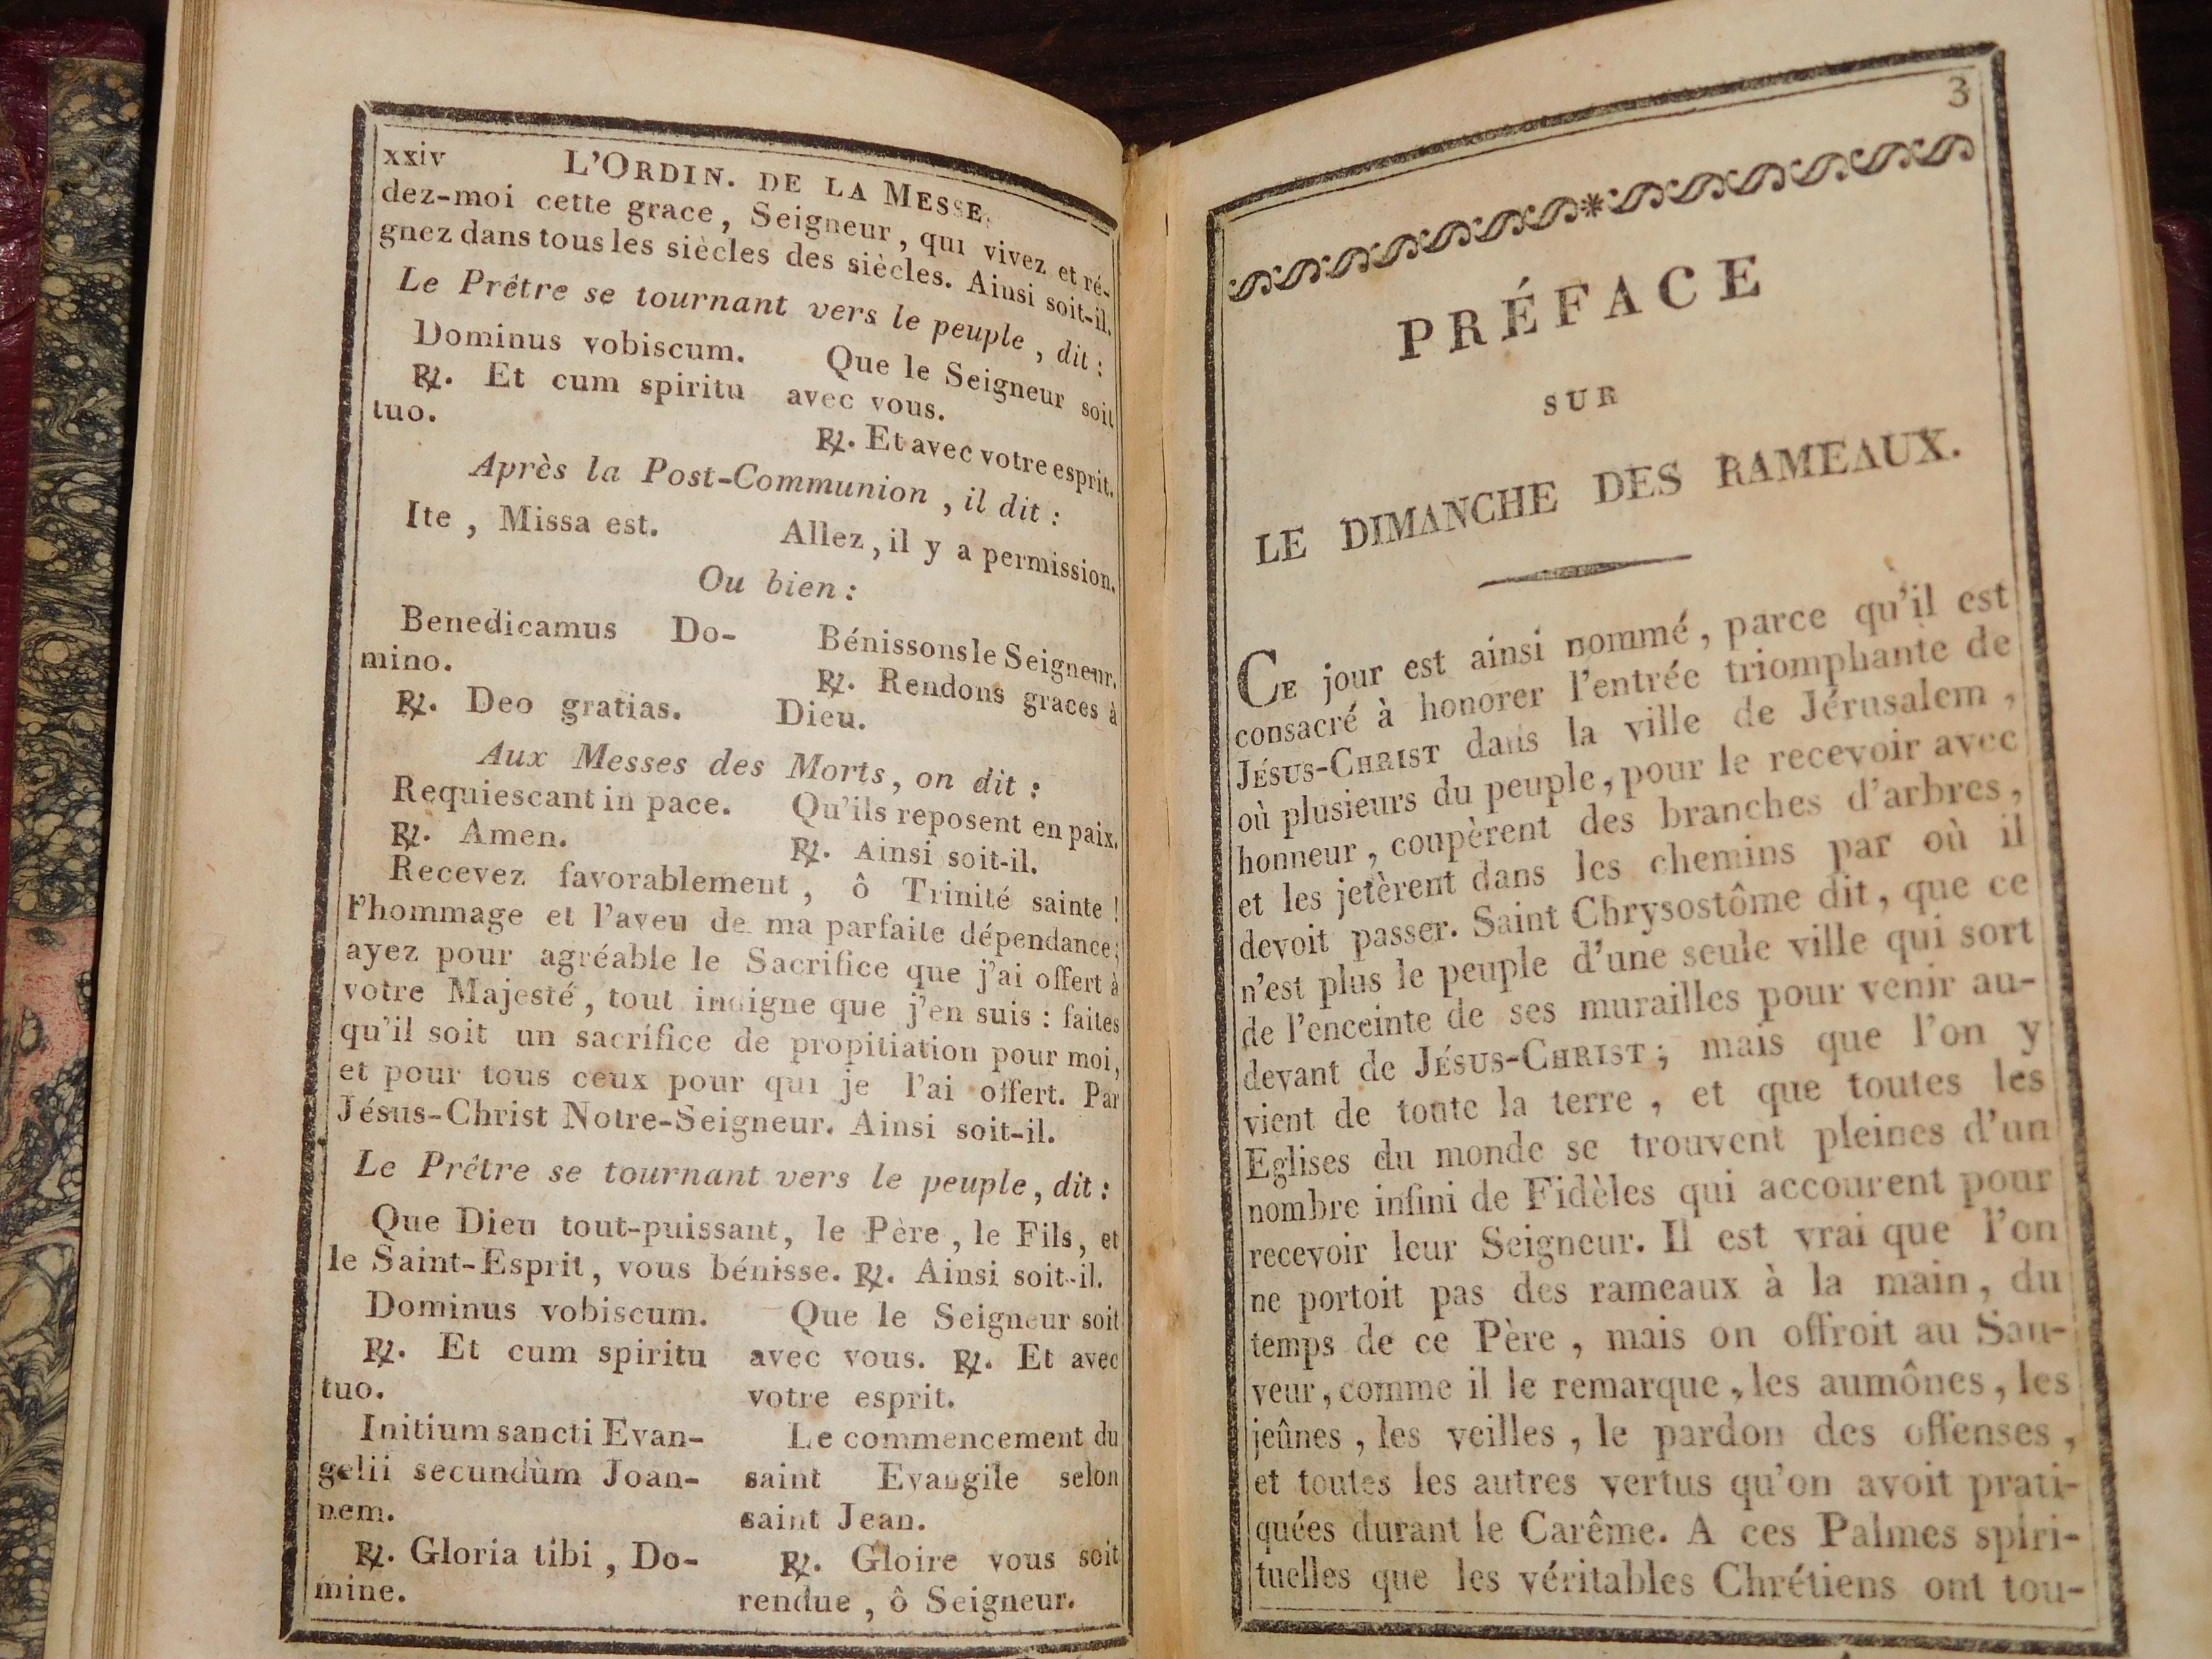 xxiv L'ORDIN. DE LA MESSE.
dez-moi cette grace, Seigneur, qui vivez et ré-
gnez dans tous les siècles des siècles. Ainsi soit-il.
Le Prêtre se tournant vers le peuple, dit :
Dominus vobiscum.
℟. Et cum spiritu
tuo.
Que le Seigneur soit
avec vous.
℟. Et avec votre esprit.
Après la Post-Communion, il dit :
Ite, Missa est.
Allez, il y a permission.
Ou bien :
Benedicamus Do-
mino.
℟. Deo gratias.
Bénissons le Seigneur.
℟. Rendons graces à
Dieu.
Aux Messes des Morts, on dit :
Requiescant in pace.
℟. Amen.
Qu'ils reposent en paix.
℟. Ainsi soit-il.
Recevez favorablement, ô Trinité sainte !
l'hommage et l'aveu de ma parfaite dépendance;
ayez pour agréable le Sacrifice que j'ai offert à
votre Majesté, tout indigne que j'en suis : faites
qu'il soit un sacrifice de propitiation pour moi,
et pour tous ceux pour qui je l'ai offert. Par
Jésus-Christ Notre-Seigneur. Ainsi soit-il.
Le Prêtre se tournant vers le peuple, dit :
Que Dieu tout-puissant, le Père, le Fils, et
le Saint-Esprit, vous bénisse. ℟. Ainsi soit-il.
Dominus vobiscum.
℟. Et cum spiritu
tuo.
Que le Seigneur soit
avec vous. ℟. Et avec
votre esprit.
Initium sancti Evan-
gelii secundùm Joan-
nem.
Le commencement du
saint Evangile selon
saint Jean.
℟. Gloria tibi, Do-
mine.
℟. Gloire vous soit
rendue, ô Seigneur.
3
PRÉFACE
SUR
LE DIMANCHE DES RAMEAUX.
CE jour est ainsi nommé, parce qu'il est
consacré à honorer l'entrée triomphante de
JÉSUS-CHRIST dans la ville de Jérusalem,
où plusieurs du peuple, pour le recevoir avec
honneur, coupèrent des branches d'arbres,
et les jetèrent dans les chemins par où il
devoit passer. Saint Chrysostôme dit, que ce
n'est plus le peuple d'une seule ville qui sort
de l'enceinte de ses murailles pour venir au-
devant de JÉSUS-CHRIST; mais que l'on y
vient de toute la terre, et que toutes les
Eglises du monde se trouvent pleines d'un
nombre infini de Fidèles qui accourent pour
recevoir leur Seigneur. Il est vrai que l'on
ne portoit pas des rameaux à la main, du
temps de ce Père, mais on offroit au Sau-
veur, comme il le remarque, les aumônes, les
jeûnes, les veilles, le pardon des offenses,
et toutes les autres vertus qu'on avoit prati-
quées durant le Carême. A ces Palmes spiri-
tuelles que les véritables Chrétiens ont tou-